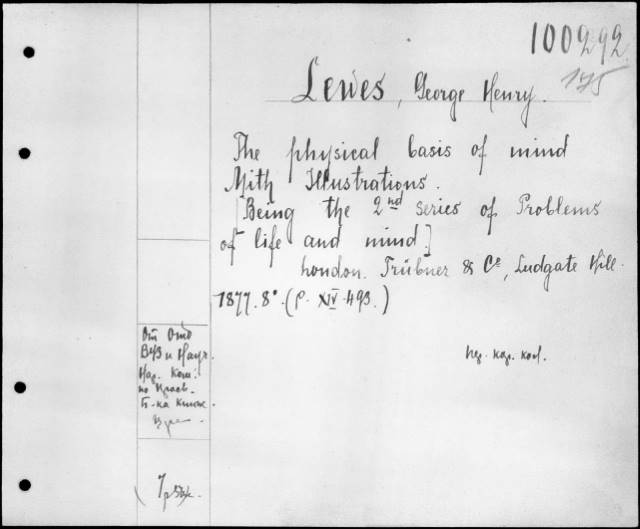 100292
175
Lewes, George Henry.
The physical basis of mind
With Illustrations.
[Being the 2nd series of Problems
of life and mind]
London. Trübner & Co, Ludgate Hill.
1877. 8°. (p. XIV. 493.)
От Отд
Нар. Ком.
Б-ка